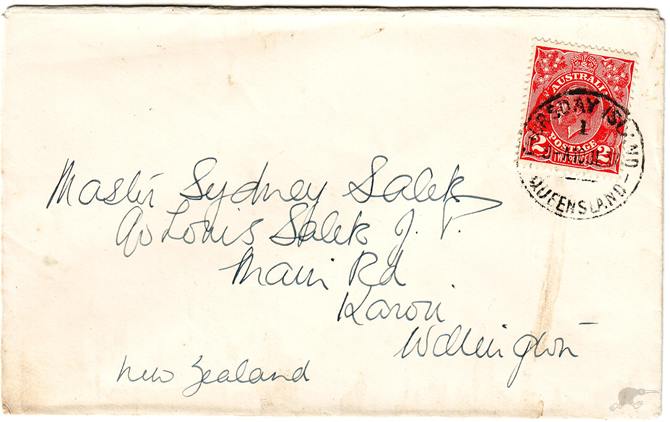 AUSTRALIA
POSTAGE
2 TWO PENCE 2
THURSDAY ISLAND
1
QUEENSLAND
Master Sydney Salek
c/o Louis Salek J.P.
Main Rd
Karori
Wellington
New Zealand